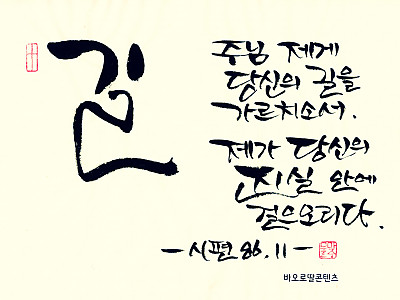 길
주님 제게
당신의 길을
가르치소서.
제가 당신의
진실 안에
걸으오리다.
-시편 86.11-
바오로딸콘텐츠